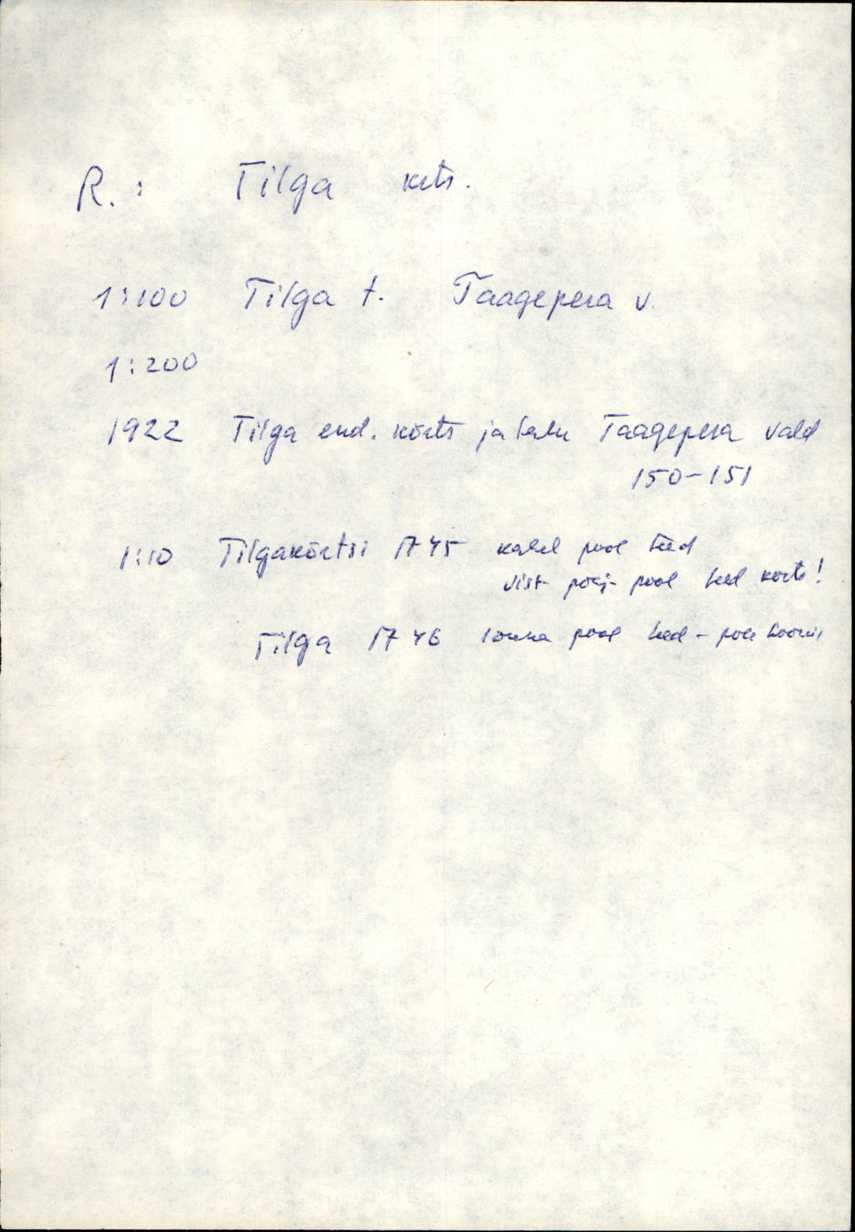 R. : Tilga krts.
1:100 Tilga t. Taagepera v.
1:200
1922 Tilga end. kõrts ja talu Taagepera vald
150-151
1:10 Tilgakõrtsi 1745 kahel pool teed
vist põhj- pool teed kõrts!
Tilga 1746 lõuna pool teed - pole hooneid